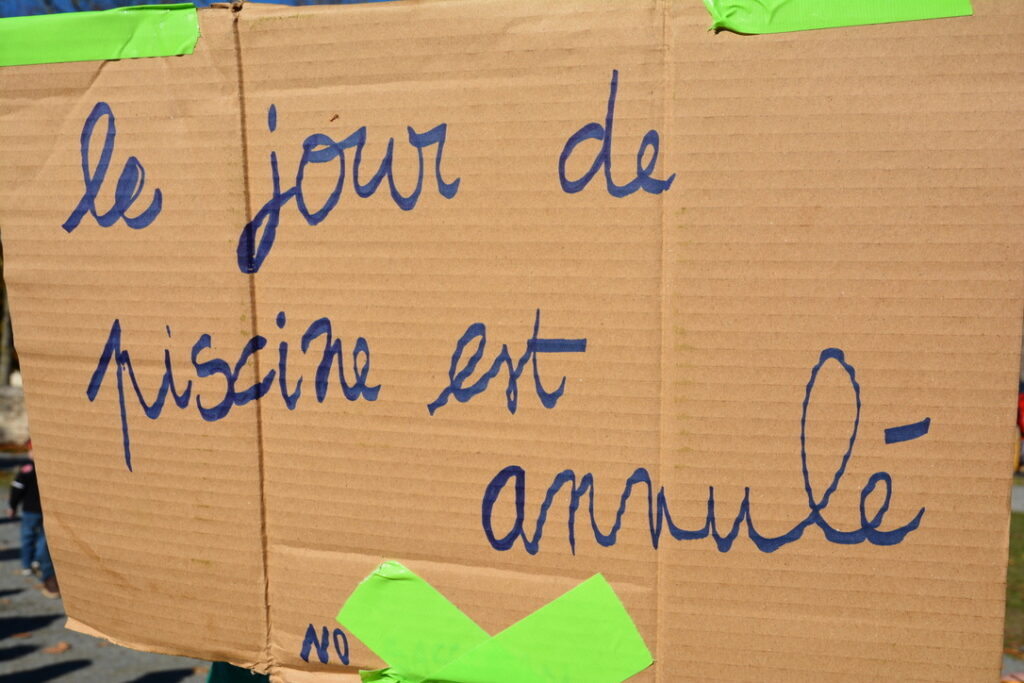 le jour de
piscine est
annulé
NO